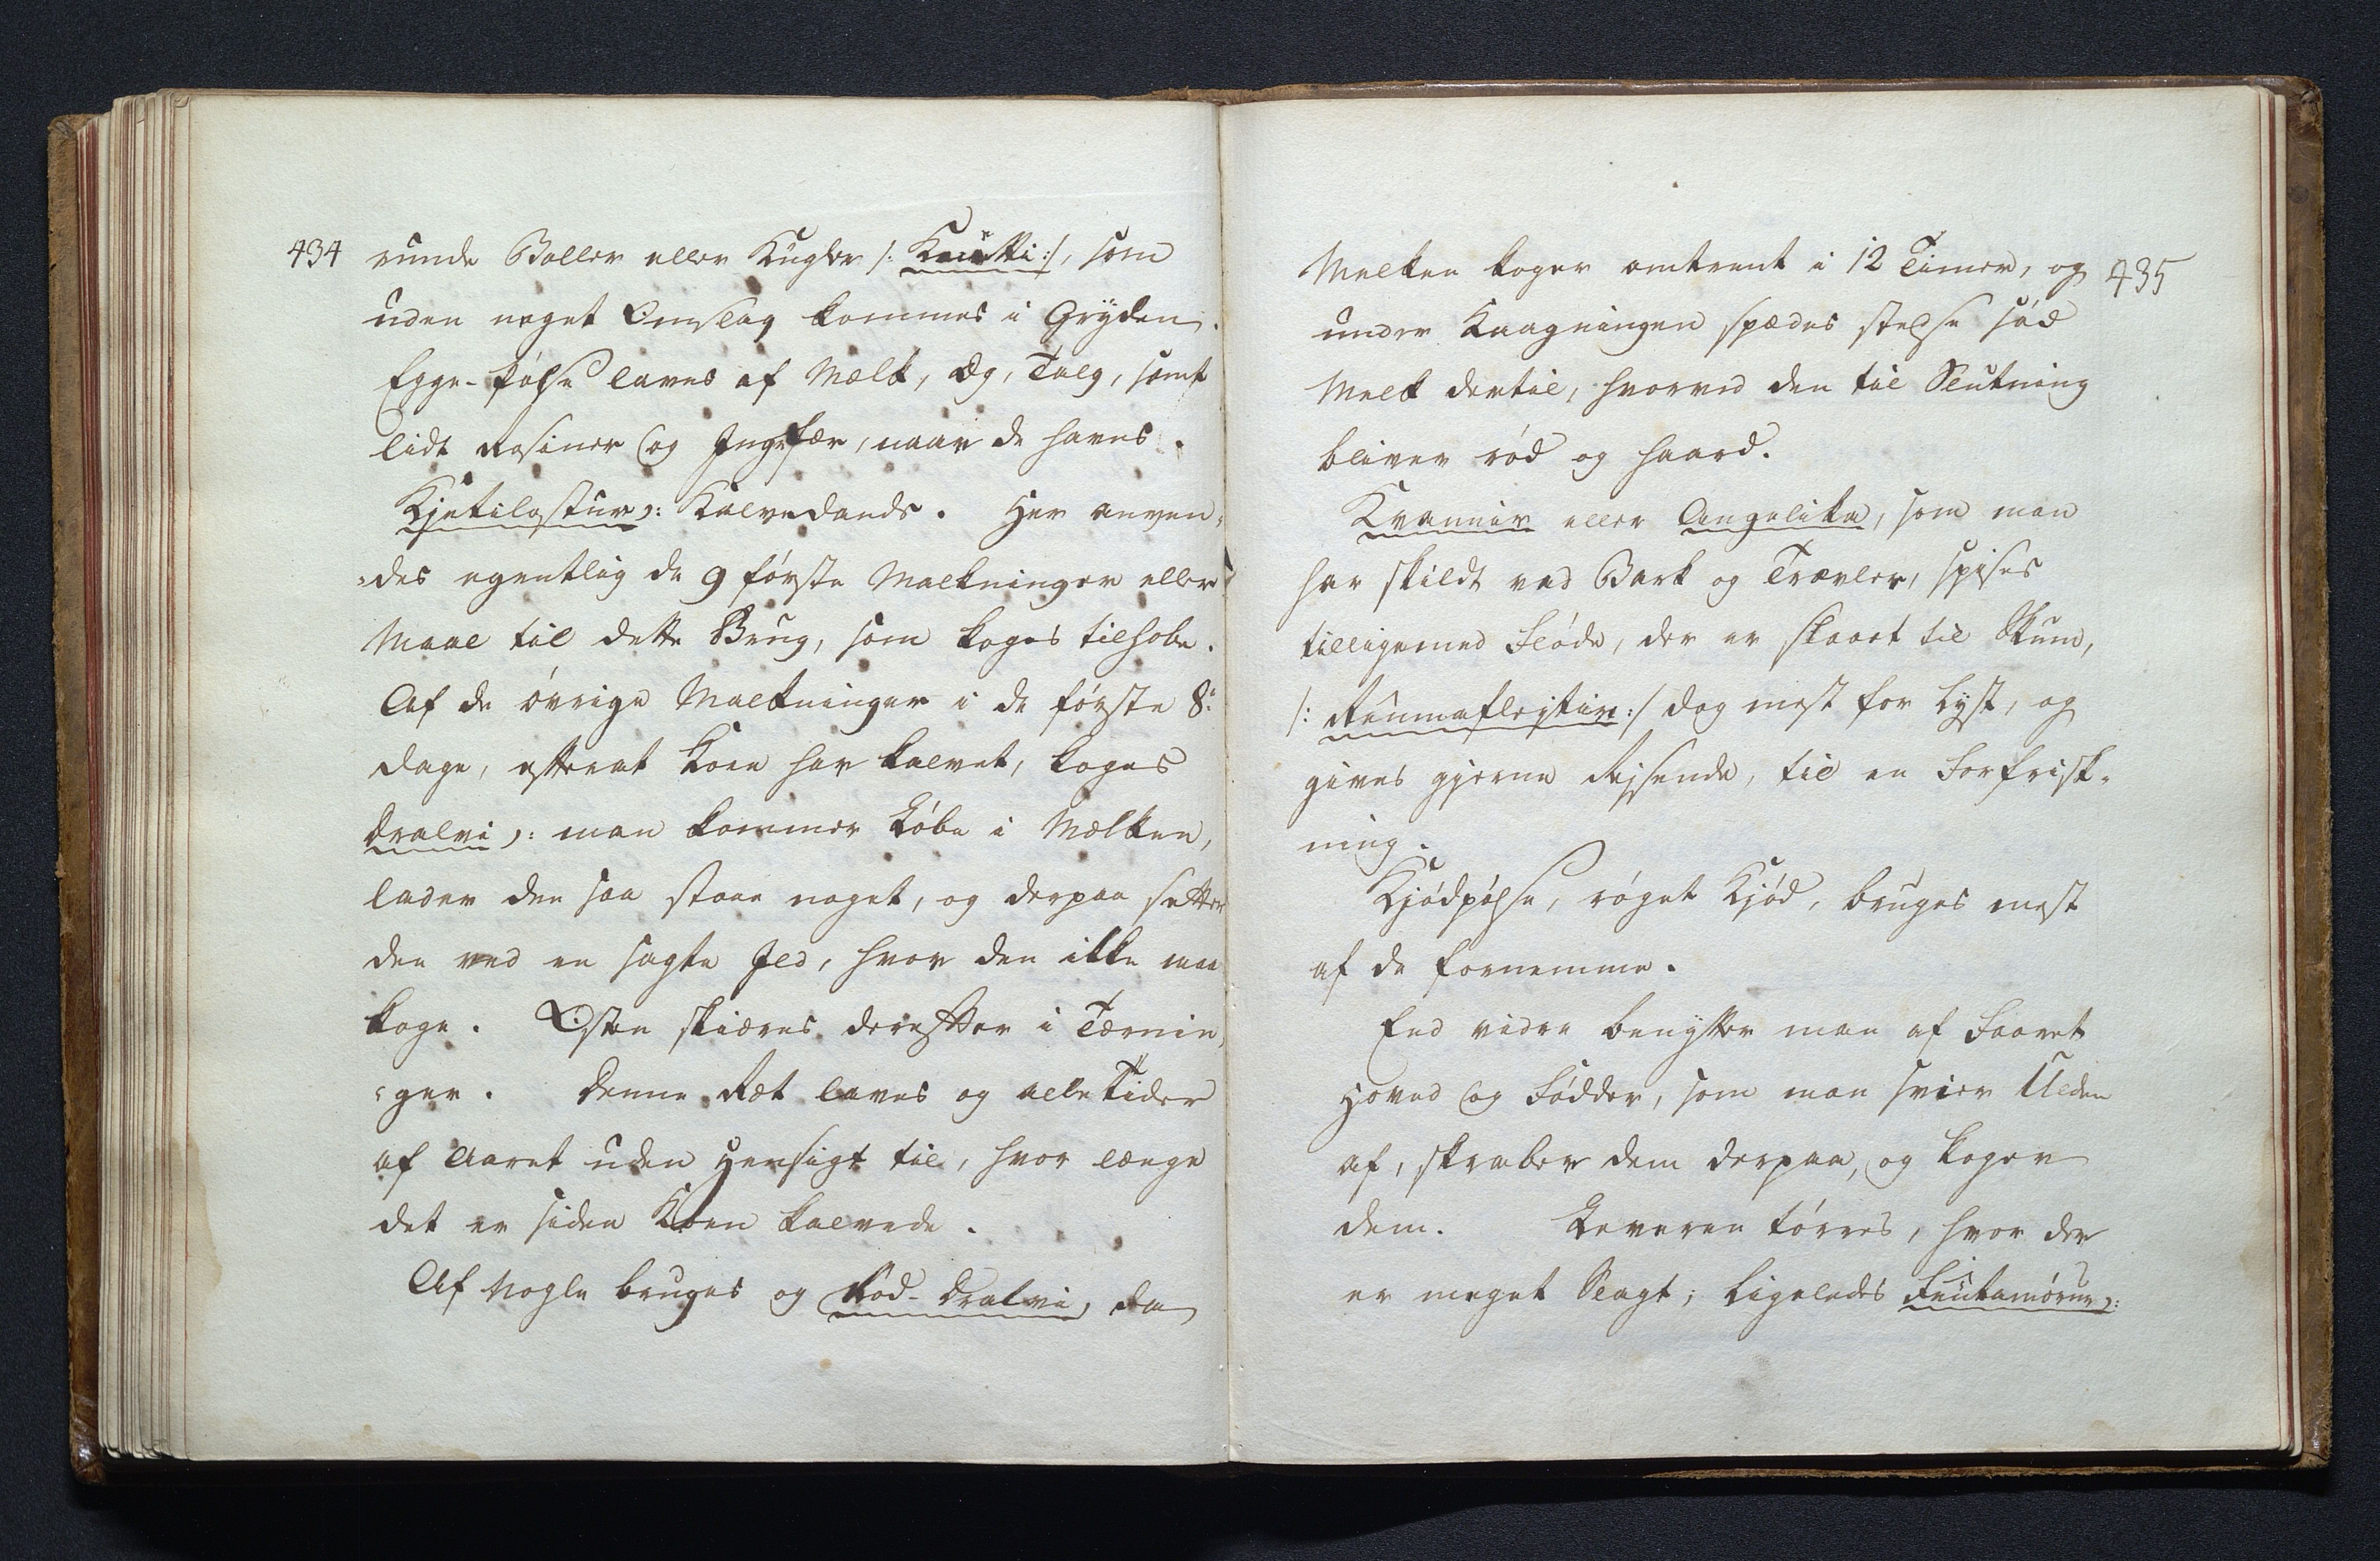 434
runde Boller eller Kugler /: Knútti :/, som
uden noget Omslag kommes i Gryden.
Egge-Pølse laves af Mælk, Æg, Talg, samt
lidt Rosiner og Ingefær, naar de haves.
Kjetilostur ɔ: Kalvedands. Her anven-
-des egentlig de 9 første Malkninger eller
Maal til dette Brug, som koges tilhobe.
Af de øvrige Malkninger i de første 8:
Dage, efterat Koen har kalvet, koges
Dralvi ɔ: man kommer Løbe i Mælken,
lader den saa staae noget, og derpaa sætter
den ved en sagte Ild, hvor den ikke maa
koge. Osten skiæres derefter i Tærnin-
-ger. Denne Ret laves og alle Tider
af Aaret uden Hensigt til, hvor længe
det er siden Koen kalvede.
Af Nogle bruges og Rød-Dralvi, da
435
Melken koger omtrent i 12 Timer, og
under Kaagningen spædes stedse sød
Melk dertil, hvorved den til Slutning
bliver rød og haard.
Kvannir eller Angelika, som man
har skildt ved Bark og Trævler, spises
tilligemed Fløde, der er slaaet til Skum,
/: Rúmmaflejtir :/ dog mest for Lyst, og
gives gjerne Rejsende, til en Forfrisk-
ning.
Kjødpølse, røget Kjød, bruges mest
af de fornemme.
End videre benytter man af Faaret
Hoved og Fødder, som man svier Ulden
af, skraber dem derpaa, og koger
dem. Leveren tørres, hvor der
er meget Slagt; ligeledes Fnútamørur ɔ: